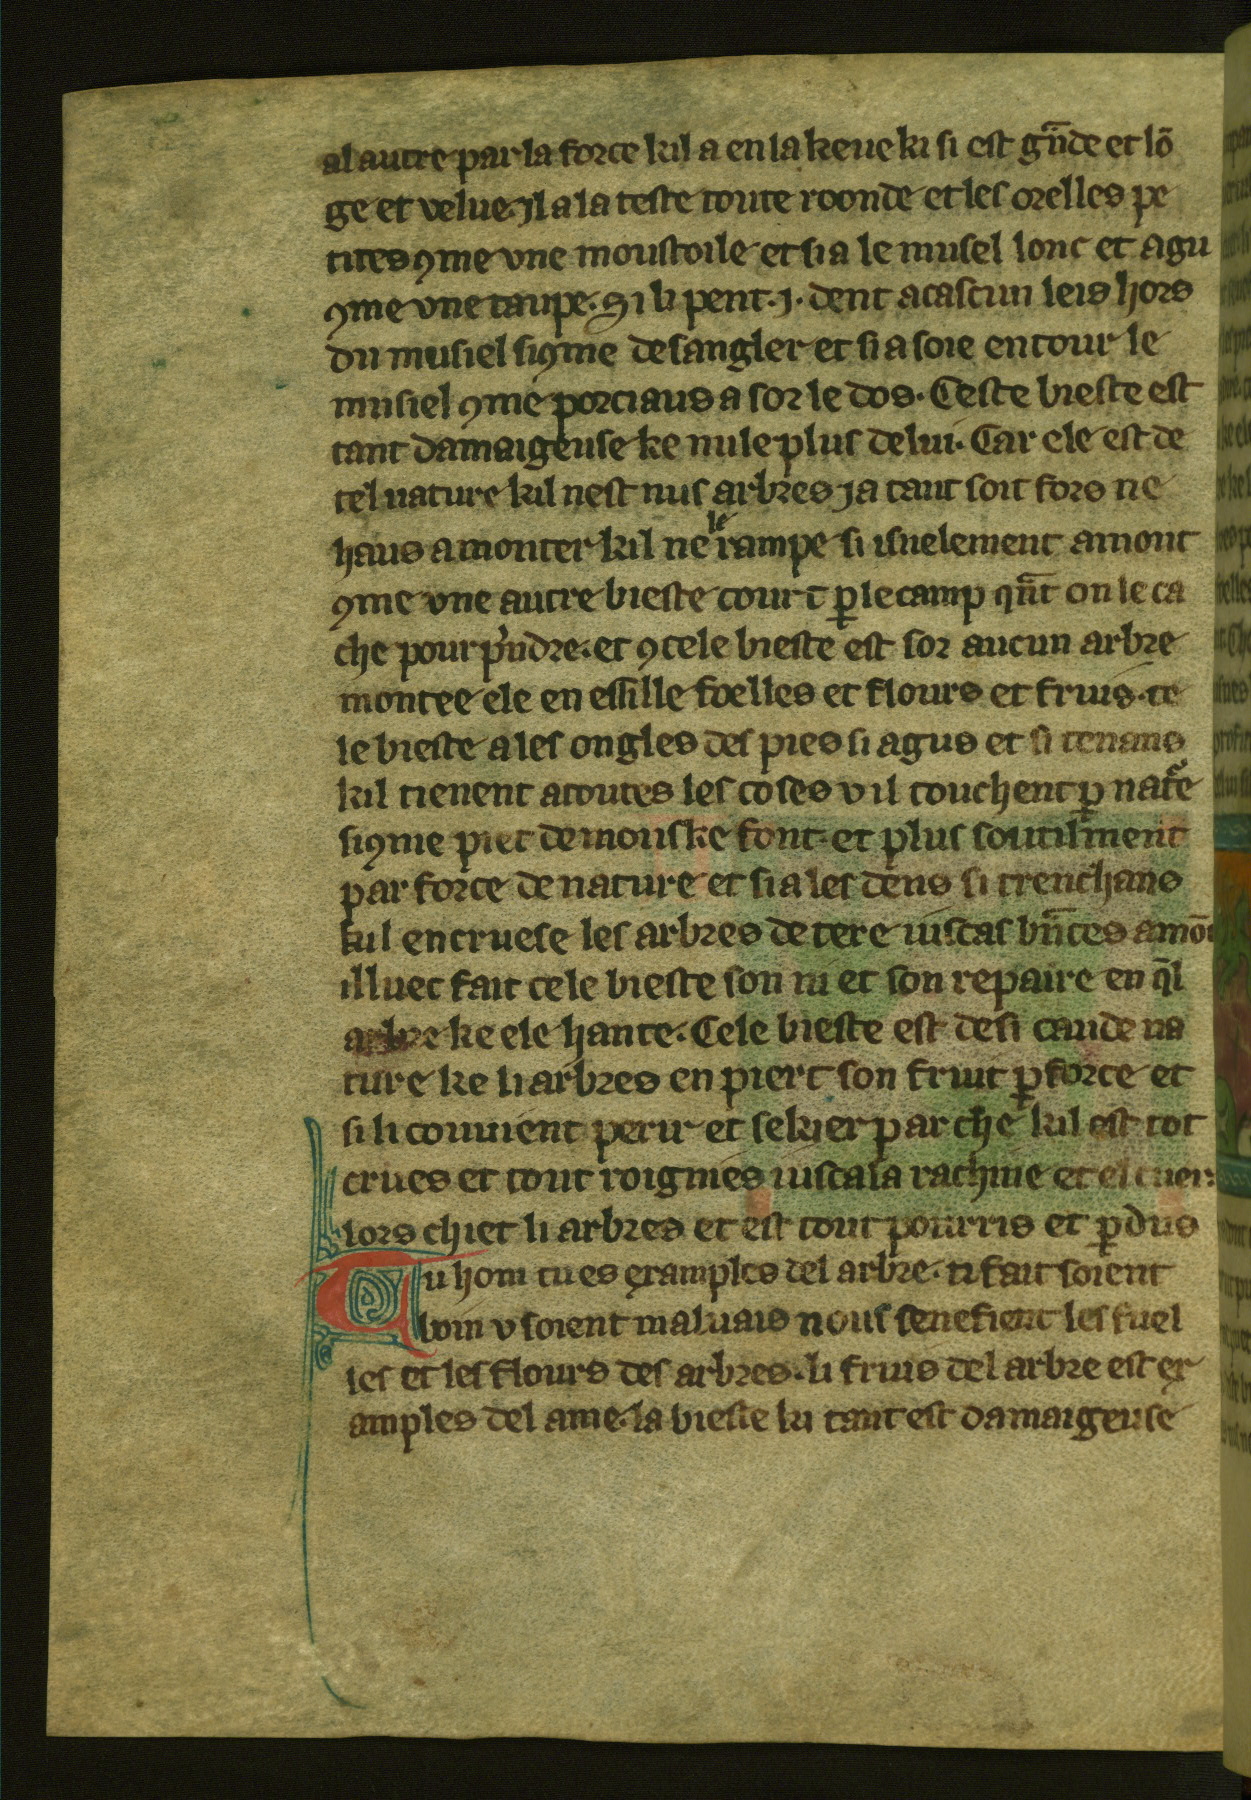 al autre par la force kil a en la keue ki si est gñde et lō
ge et velue. Jl a la teste toute roonde et les orelles pe
tites ꝯme vne moustoile et si a le musel lonc et agu
ꝯme vne taupe. Si li pent .j. dent a cascun leis hors
du musiel si ꝯme de sangler et si a soie entour le
musiel ꝯme porciaus a sor le dos. Ceste bieste est
tant damaigeuse ke nule plus de lui. Car ele est de
tel nature kil nest nus arbres ja tant soit fors ne
haus a monter kil ne le rampe si isnelement amont
ꝯme vne autre bieste court ꝑ le camp qñt on le ca
che pour pͥndre. et ꝯ cele bieste est sor aucun arbre
montee ele en essille foelles et flours et fruis. ce
le bieste a les ongles des pies si agus et si tenans
kil tienent a toutes les coses v il touchent ꝑ natͬe
si ꝯme piet de mouske font. et plus soutilment
par force de nature et si a les dens si trenchans
kil encruese les arbres de tere iuscas bñces amōt
illuec fait cele bieste son ni et son repaire en ql̄
arbre ke ele hante. Cele bieste est de si caude na
ture ke li arbres en piert son fruit ꝑ force et
si li couuient perir et sekier par che kil est tot
crues et tout roignies iusca la rachine et el cuer.
lors chiet li arbres et est tout pourris et ꝑdus
Tu hom tu es examples del arbre. ti fait soient
boin v soient maluais nous senefient les fuel
les et les flours des arbres. li fruis del arbre est ex
amples del ame. la bieste ki tant est damaigeuse